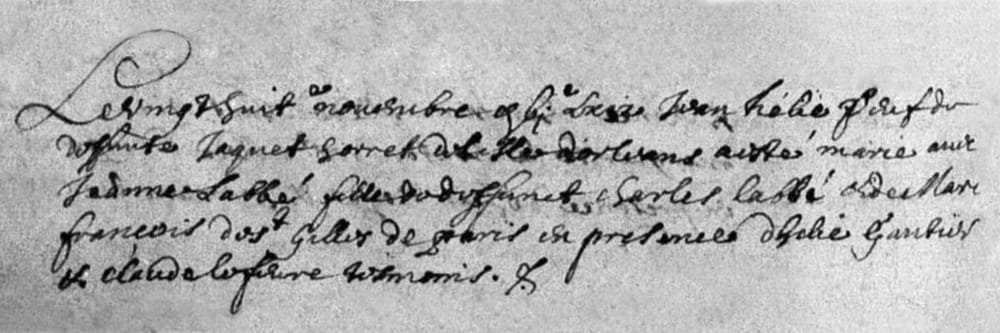 Le vingt huit e novembre Jean helie veuf de
deffunte Jaquet de l'Isle dorleans a esté marié avec
Jeanne Labbé fille de deffunct charles labbé & de Marie
francois de st gilles de paris en presence dhelie Gautier
& claude lefevre tesmoins.